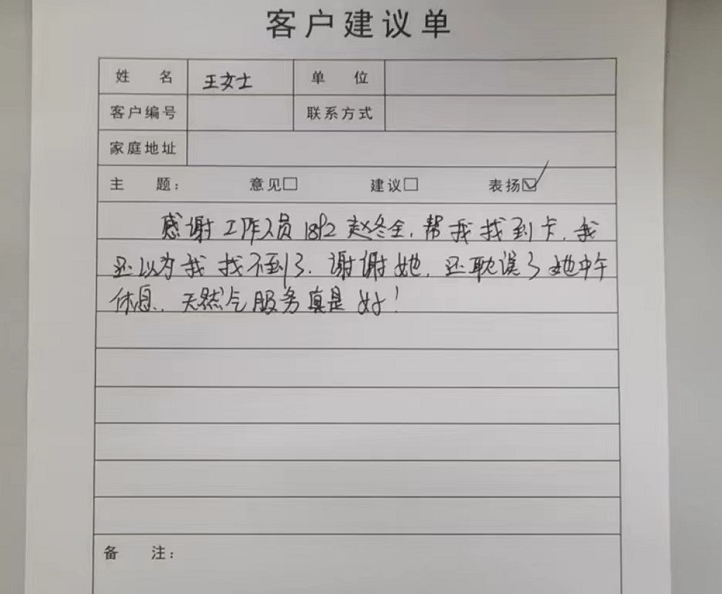 客户建议单
姓 名 王女士 单 位
客户编号 联系方式
家庭地址
主 题： 意见□ 建议□ 表扬☑
感谢工作人员1812赵冬全,帮我找到卡,我
还以为我找不到了.谢谢她,还耽误了她中午
休息.天然气服务真是好!
备 注：